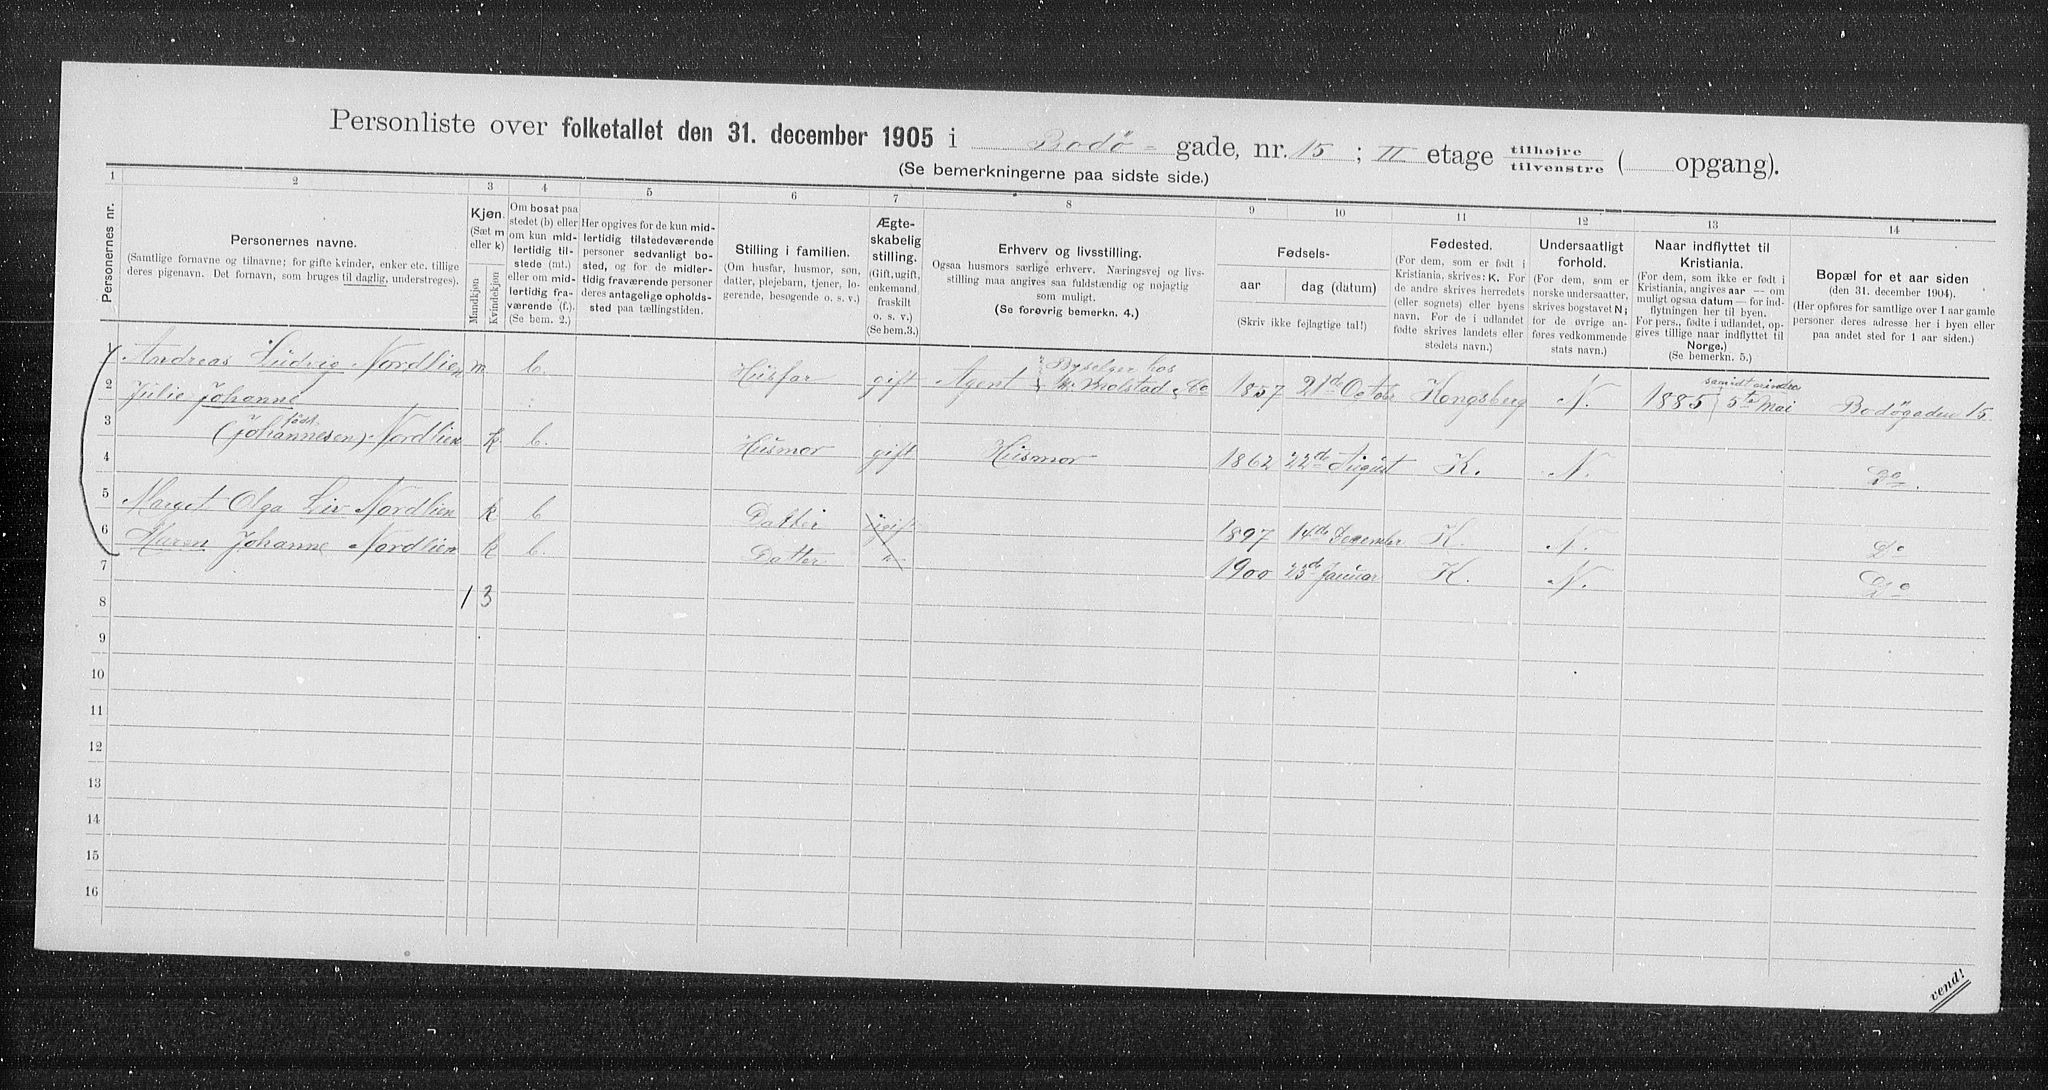 Personliste over folketallet den 31. december 1905 i Bodø- gade, nr. 15 ; II etage tilhøjre / tilvenstre ( opgang).
(Se bemerkningerne paa sidste side.)
1 2 3 4 5 6 7 8 9 10 11 12 13 14
Personernes nr.
Personernes navne.
(Samtlige fornavne og tilnavne; for gifte kvinder, enker etc. tillige
deres pigenavn. Det fornavn, som bruges til daglig, understreges).
Kjøn.
(Sæt m
eller k)
Mandkjøn
Kvindekjøn
Om bosat paa
stedet (b) eller
om kun mid-
lertidig til-
stede (mt.)
eller om mid-
lertidig fra-
værende (f.).
(Se bem. 2.)
Her opgives for de kun mid-
lertidig tilstedeværende
personer sedvanligt bo-
sted, og for de midler-
tidig fraværende personer
deres antagelige opholds-
sted paa tællingstiden.
Stilling i familien.
(Om husfar, husmor, søn,
datter, plejebarn, tjener, lo-
gerende, besøgende o. s. v.)
Ægte-
skabelig
stilling.
(Gift, ugift,
enkemand,
fraskilt
o. s. v.)
(Se bem. 3.)
Erhverv og livsstilling.
Ogsaa husmors særlige erhverv. Næringsvej og livs-
stilling maa angives saa fuldstændig og nøjagtig
som muligt.
(Se forøvrig bemerkn. 4.)
Fødsels-
aar
dag (datum)
(Skriv ikke fejlagtige tal!)
Fødested.
(For dem, som er født i
Kristiania, skrives: K. For
de andre skrives herredets
(eller sognets) eller byens
navn. For de i udlandet
fødte skrives landets eller
stedets navn.)
Undersaatligt
forhold.
(For dem, som er
norske undersaatter,
skrives bogstavet N;
for de øvrige an-
føres vedkommende
stats navn.)
Naar indflyttet til
Kristiania.
(For dem, som ikke er født i
Kristiania, angives aar — om
muligt ogsaa datum — for ind-
flytningen her til byen.
For pers., fødte i udlandet, op-
gives tillige naar indflyttet til
Norge.)
(Se bemerkn. 5.)
Bopæl for et aar siden
(den 31. december 1904).
(Her opføres for samtlige over 1 aar gamle
personer deres adresse her i byen eller
paa andet sted for 1 aar siden.)
1 Andreas Ludvig Nordlien m b. Husfar gift Agent Bysælger hos & Co 1857 21de October Kongsberg N. 1885 5te Mai Bodøgaden 15.
2 Julie Johanne
3 født (Johannesen) Nordlien k b. Husmor gift Husmor 1862 22de August K. N. Do.
4
5 Marget Olga Liv Nordlien k b Datter ugift 1897 14de December K. N. Do
6 Maren Johanne Nordlien k b. Datter " 1900 23de Januar K. N. Do
7
8 1 3
9
10
11
12
13
14
15
16
vend!